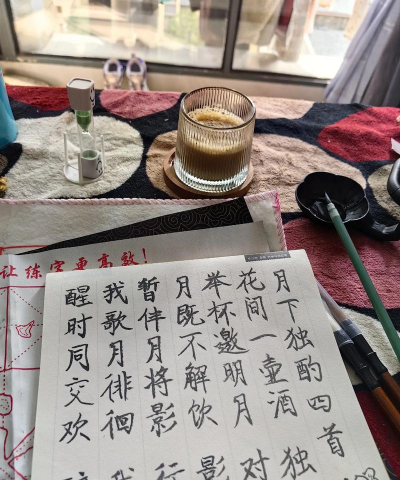 让练字更高效！
月下独酌四首
花间一壶酒独
举杯邀明月对
月既不解饮影
暫伴月将影行
我歌月徘徊我
醒时同交欢